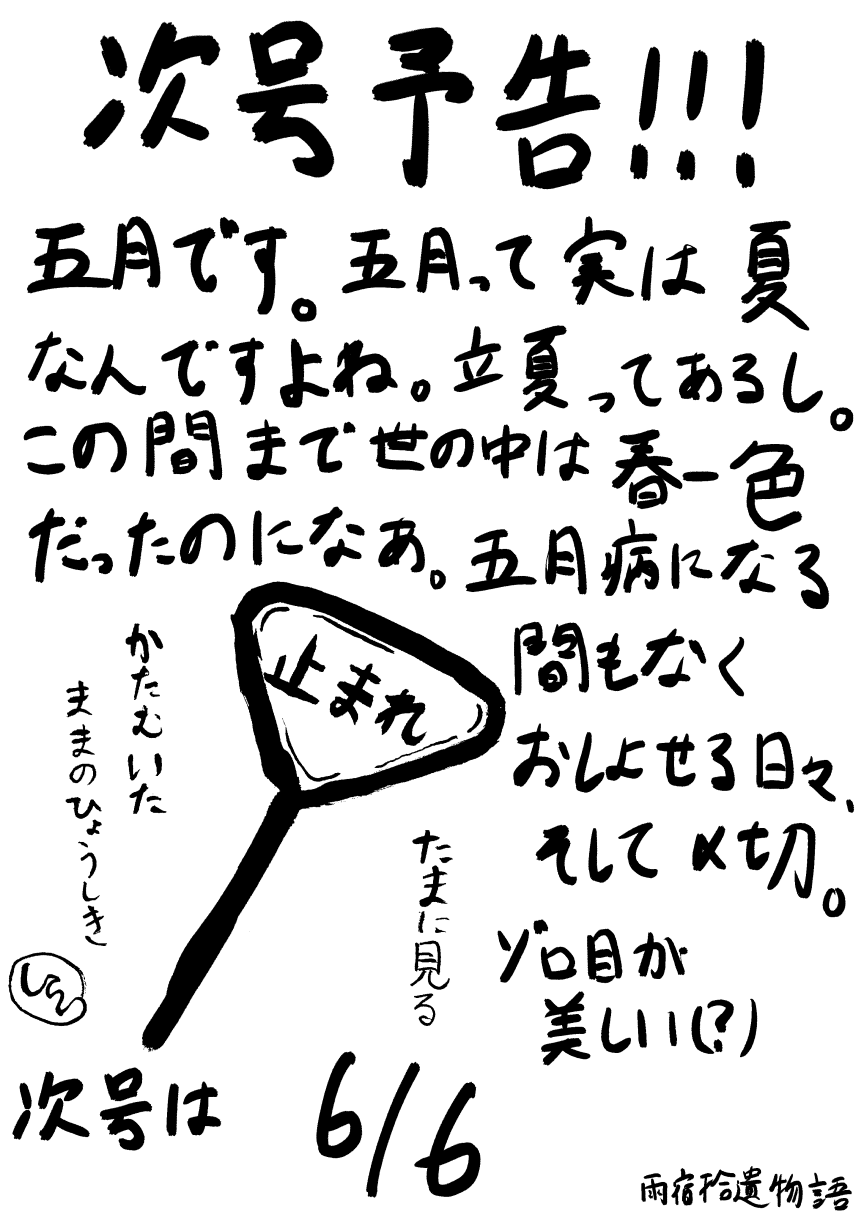 次号予告!!!
五月です。五月って実は夏
なんですよね。立夏ってあるし。
この間まで世の中は春一色
だったのになぁ。五月病になる
間もなく
おしよせる日々、
そして〆切。
ゾロ目が
美しい(?)
止まれ
かたむいた
ままのひょうしき
たまに見る
次号は 6/6
雨宿拾遺物語